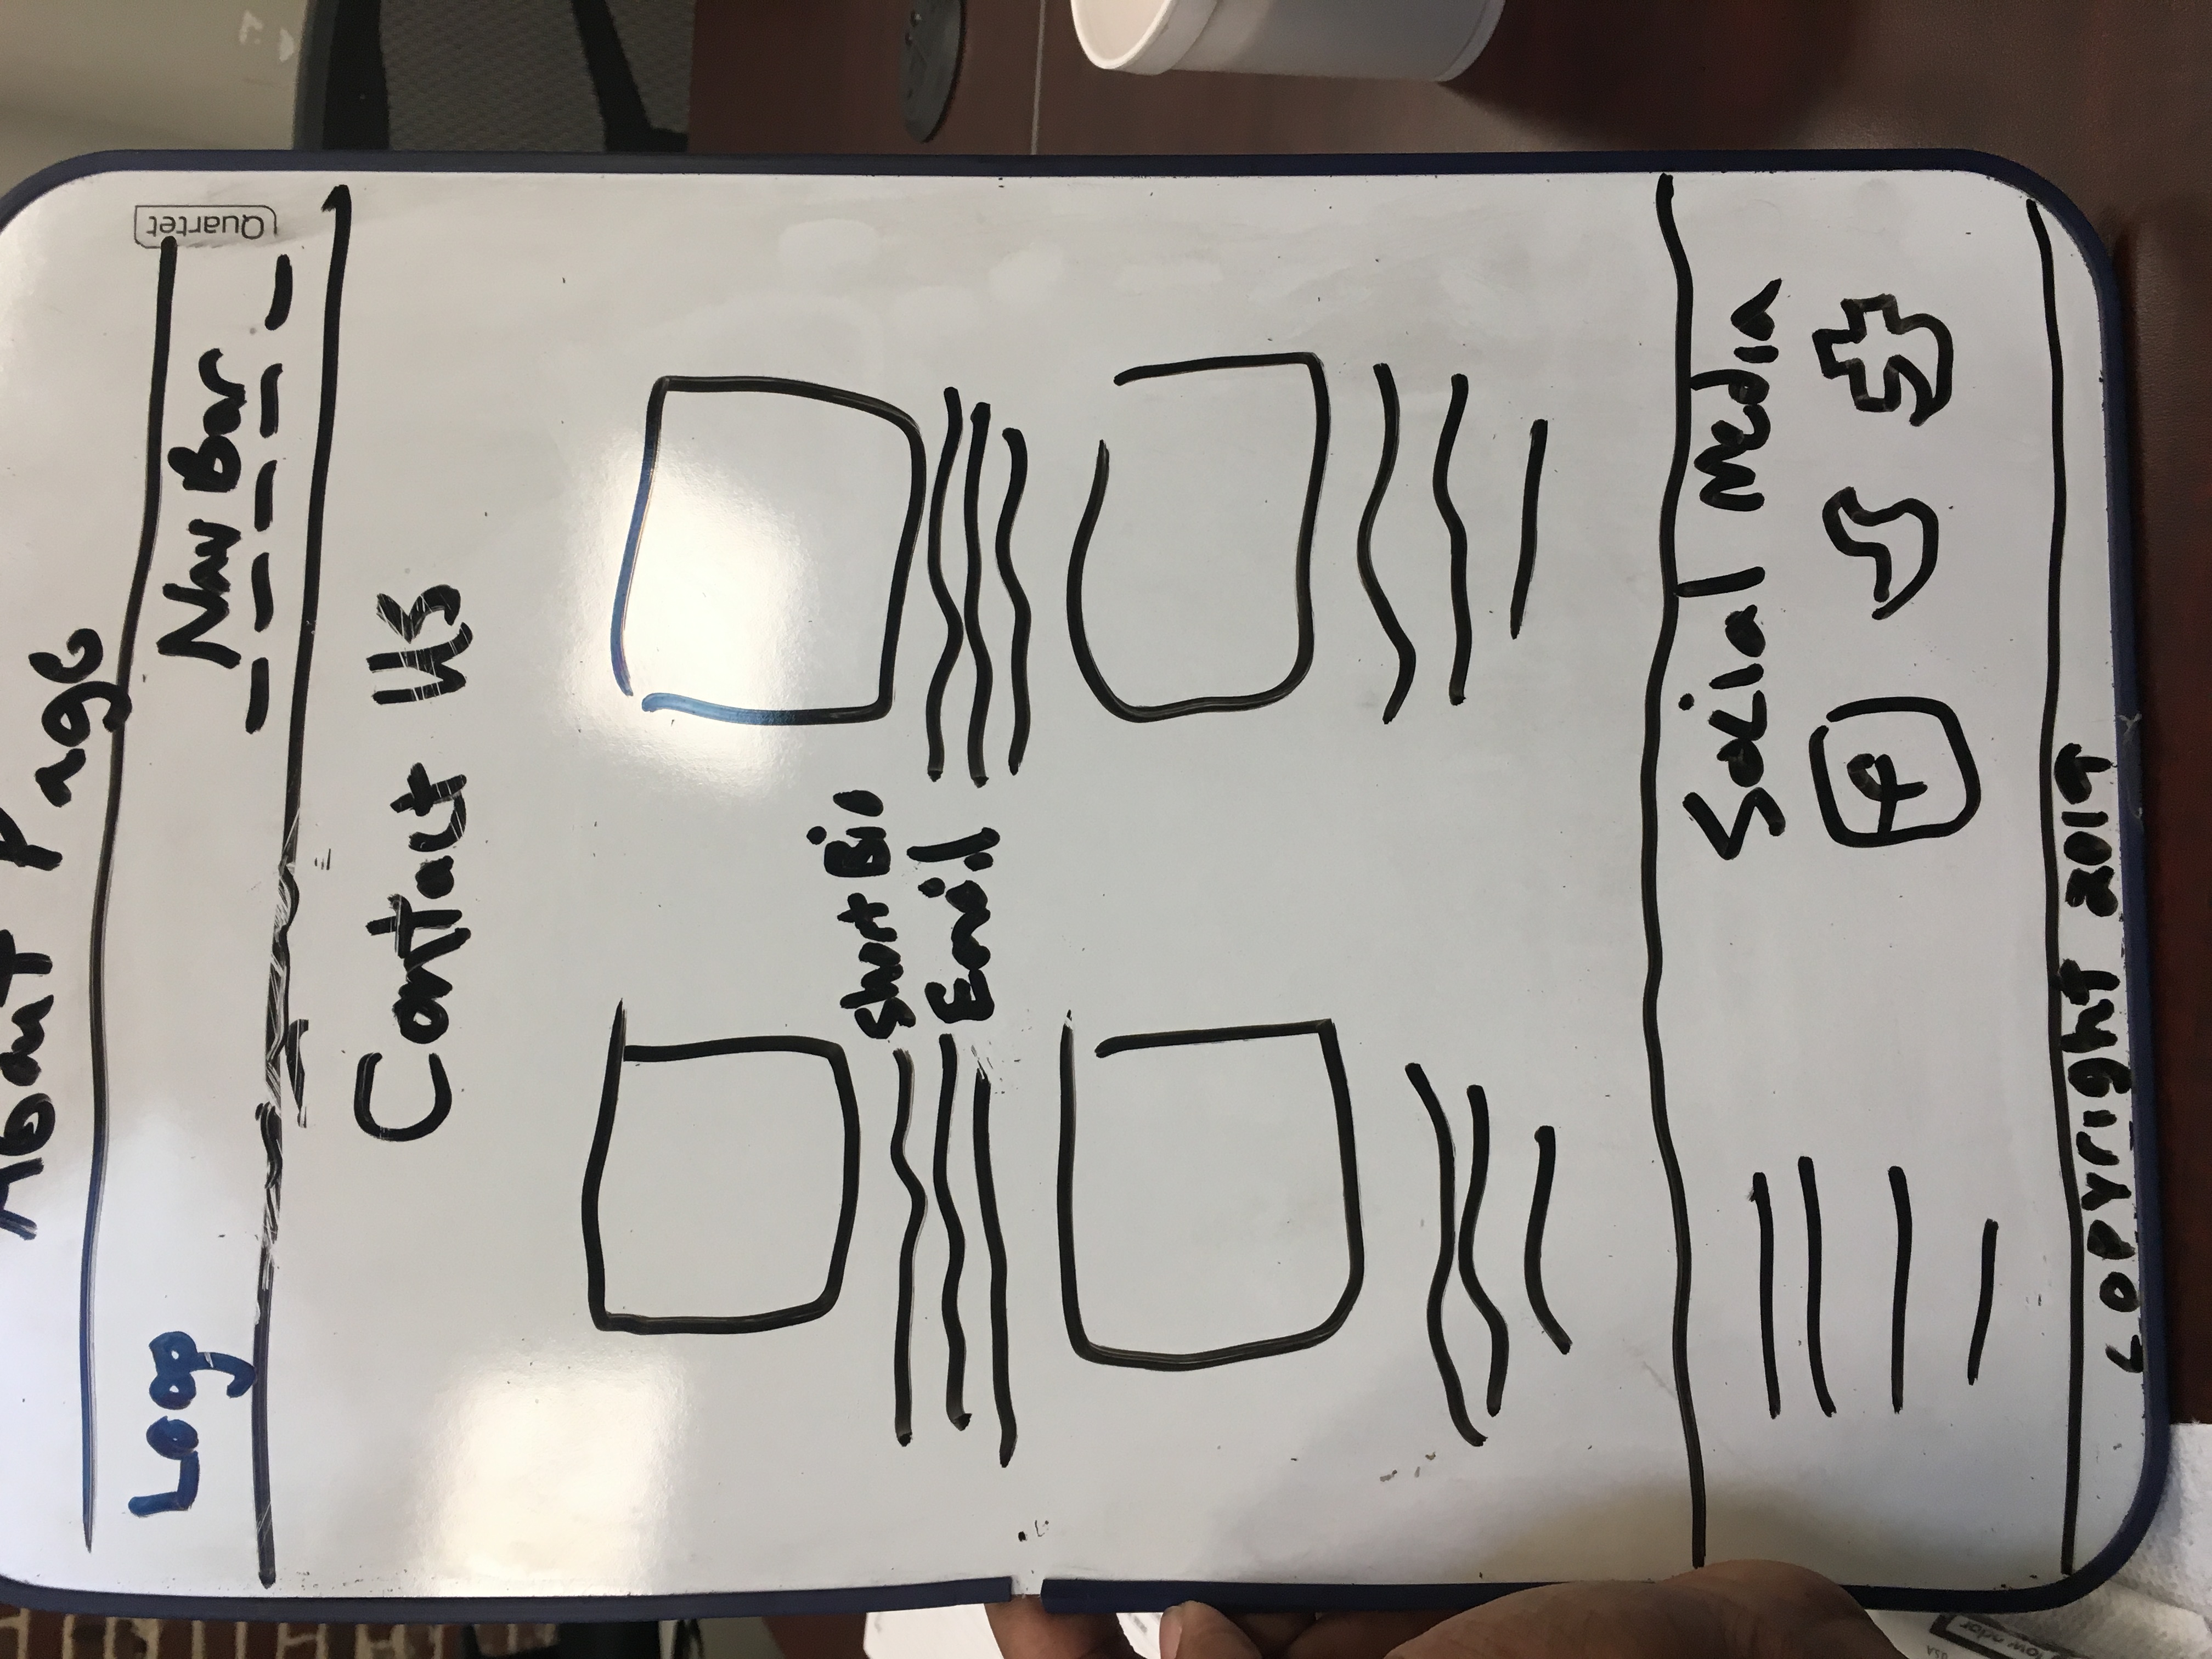 About Page
Logo
Nav Bar
Quartet
Contact Us
Short Bio
Email
Social Media
f
Copyright 2019